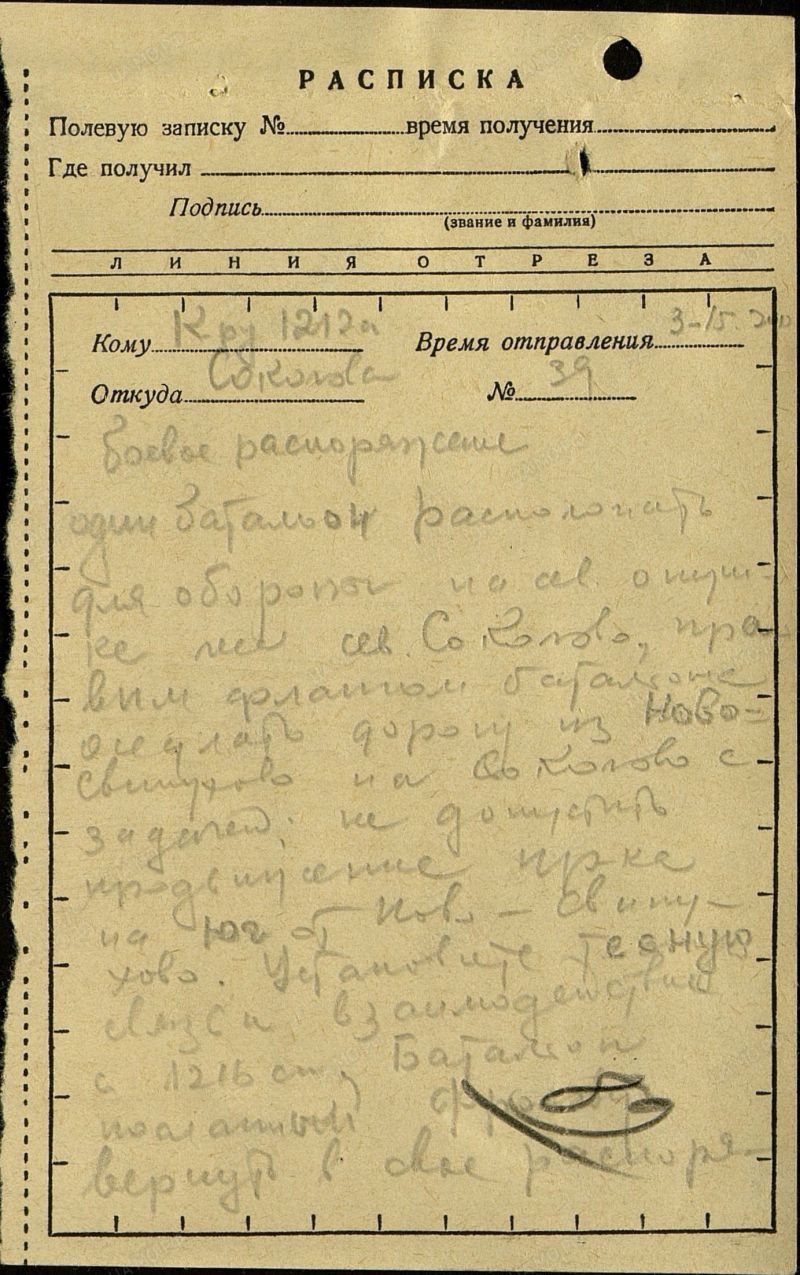 РАСПИСКА
Полевую записку № время получения
Где получил
Подпись
(звание и фамилия)
ЛИНИЯ ОТРЕЗА
Кому 1212 Время отправления 3-15
Откуда Соколово № 39
Боевое распоряжение
один батальон расположить
для обороны на сев. опуш-
ке сев. Соколово, пра-
вым флангом батальона
оседлать дорогу из Ново-
Свинухово на Соколово с
задачей: не допустить
продвижение пр-ка
на юг от Ново-Свину-
хово. Установите тесную
связь и взаимодействие
с 1216 сп, Батальон
вернуть в свое распоря-